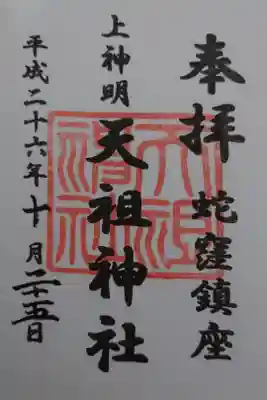 奉拝
蛇窪鎮座
上神明
天祖神社
平成二十六年十月二十五日
天祖神社